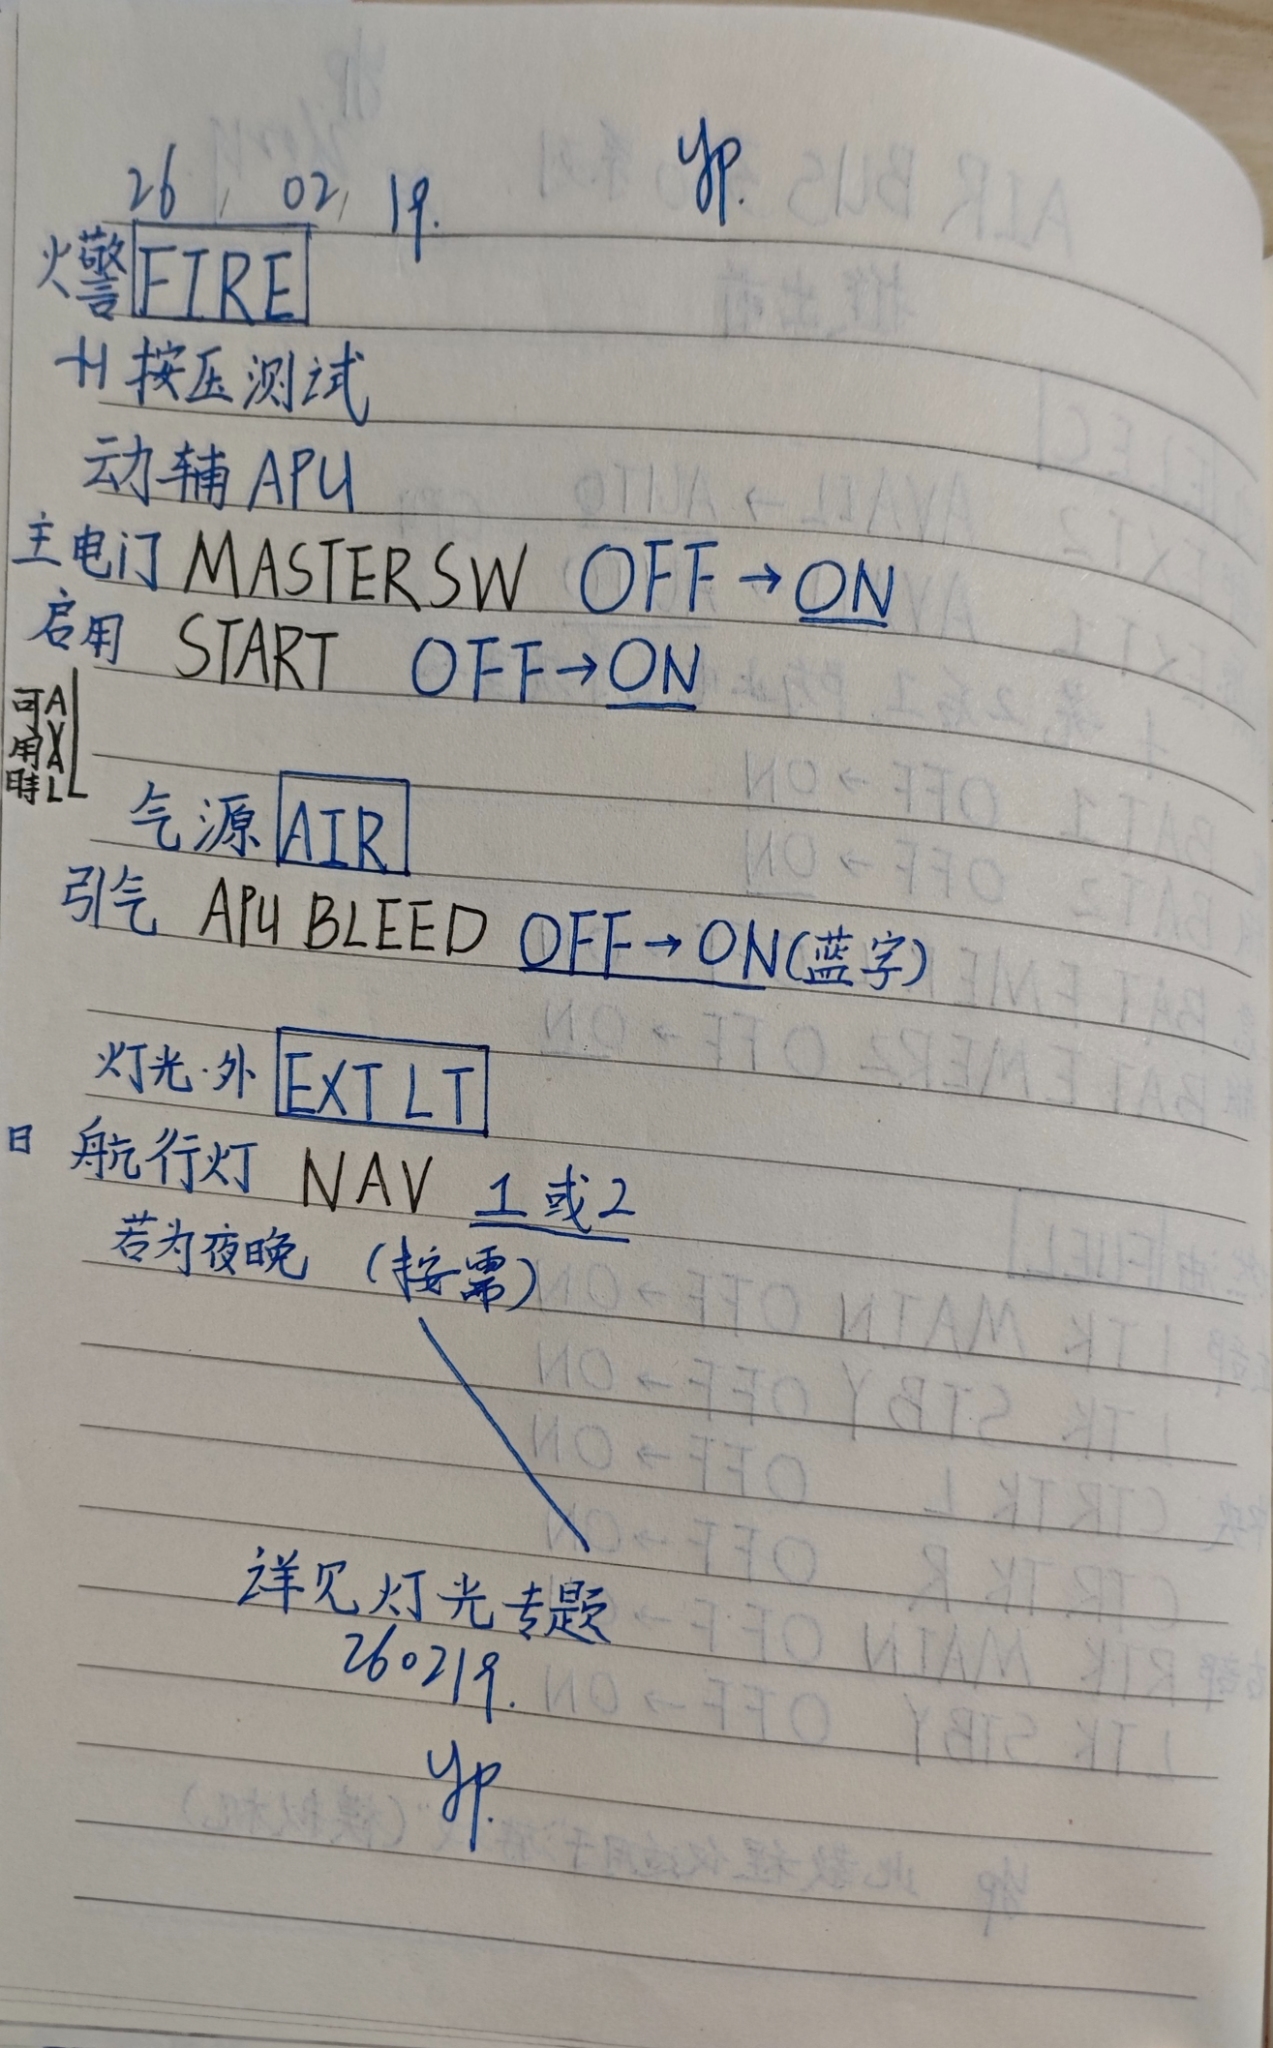 26, 02, 19. yp.
火警 FIRE
按压测试
动辅 APU
主电门 MASTER SW OFF→ON
启用 START OFF→ON
可用時 AVAIL
气源 AIR
引气 APU BLEED OFF→ON(蓝字)
灯光·外 EXT LT
日 航行灯 NAV 1或2
若为夜晚 (按需)
详见灯光专题
260219.
yp.